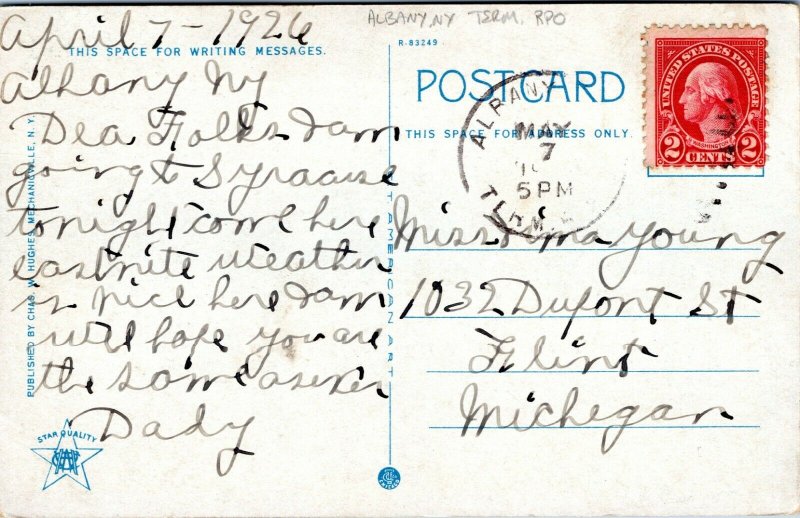 April 7-1926
THIS SPACE FOR WRITING MESSAGES.
Albany Ny
Dea Folks I am
going to Syracuse
tonight come here
last nite weather
is nice here I am
well hope you are
the same as ever
Dady
PUBLISHED BY CHAS. W. HUGHES, MECHANICVILLE, N. Y.
STAR QUALITY
AMERICAN ART
ALBANY, NY TERM. RPO
R-83249
POST CARD
THIS SPACE FOR ADDRESS ONLY.
ALBANY
MAY
7
5PM
TERM.
UNITED STATES POSTAGE
WASHINGTON
2 CENTS 2
Miss Ima Young
1032 Dupont St
Flint
Michegan